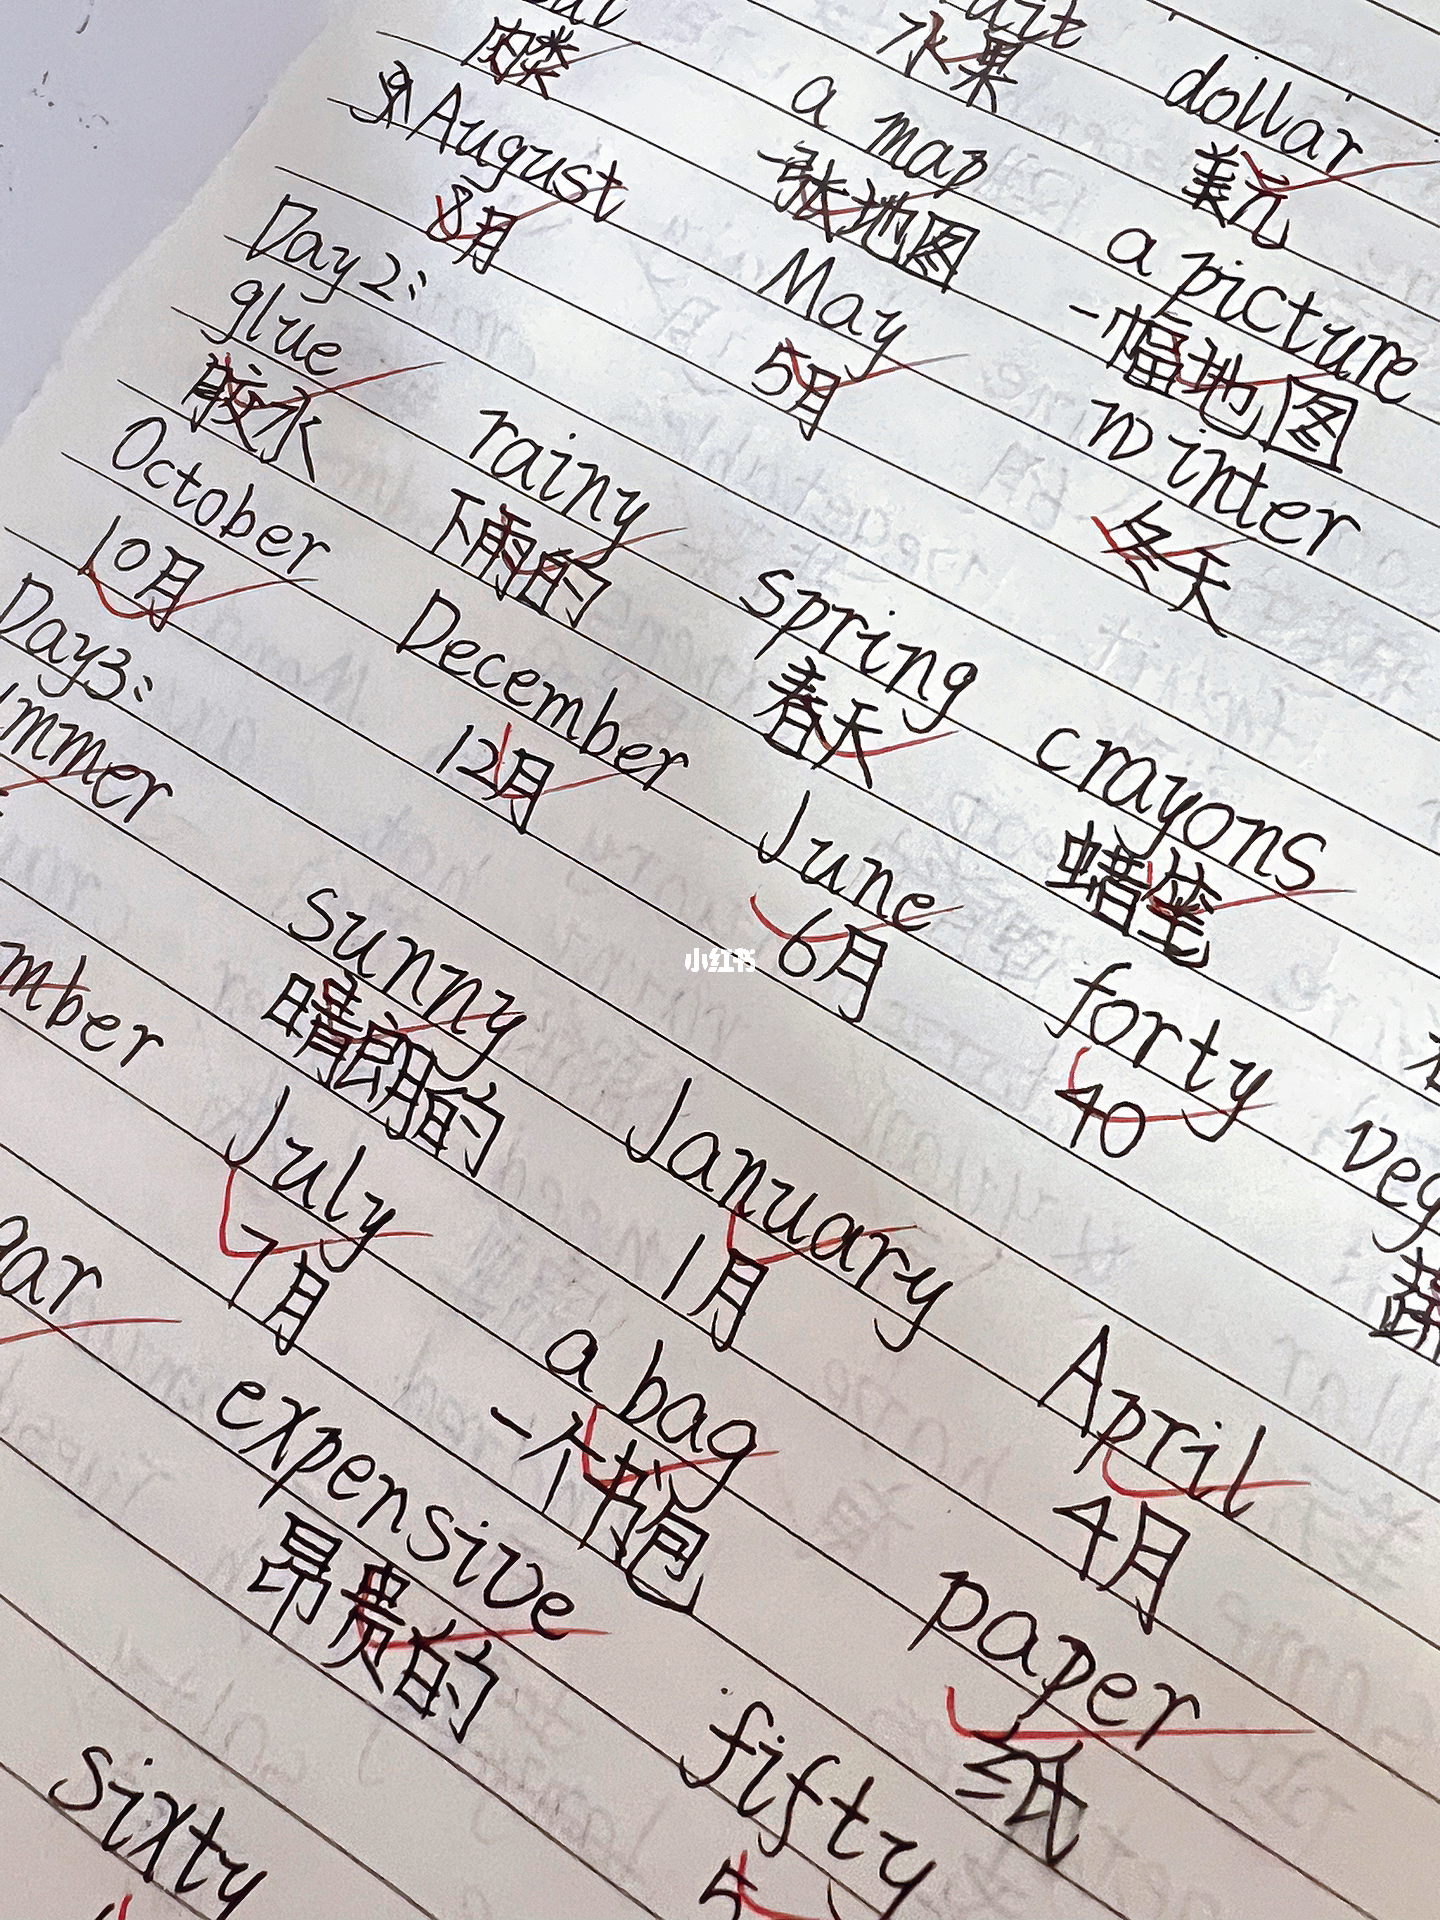 肉类 水果 dollar
August a map 美元
8月 一张地图 a picture
Day2: May 一幅地图
glue 5月 winter
胶水 rainy 冬天
October 下雨的 spring
10月 December 春天 crayons
Day3: 12月 June 蜡笔
sunny 6月 forty
晴朗的 January 40
July 1月 April
7月 a bag 4月
expensive 一个书包 paper
昂贵的 fifty 纸
sixty
小红书